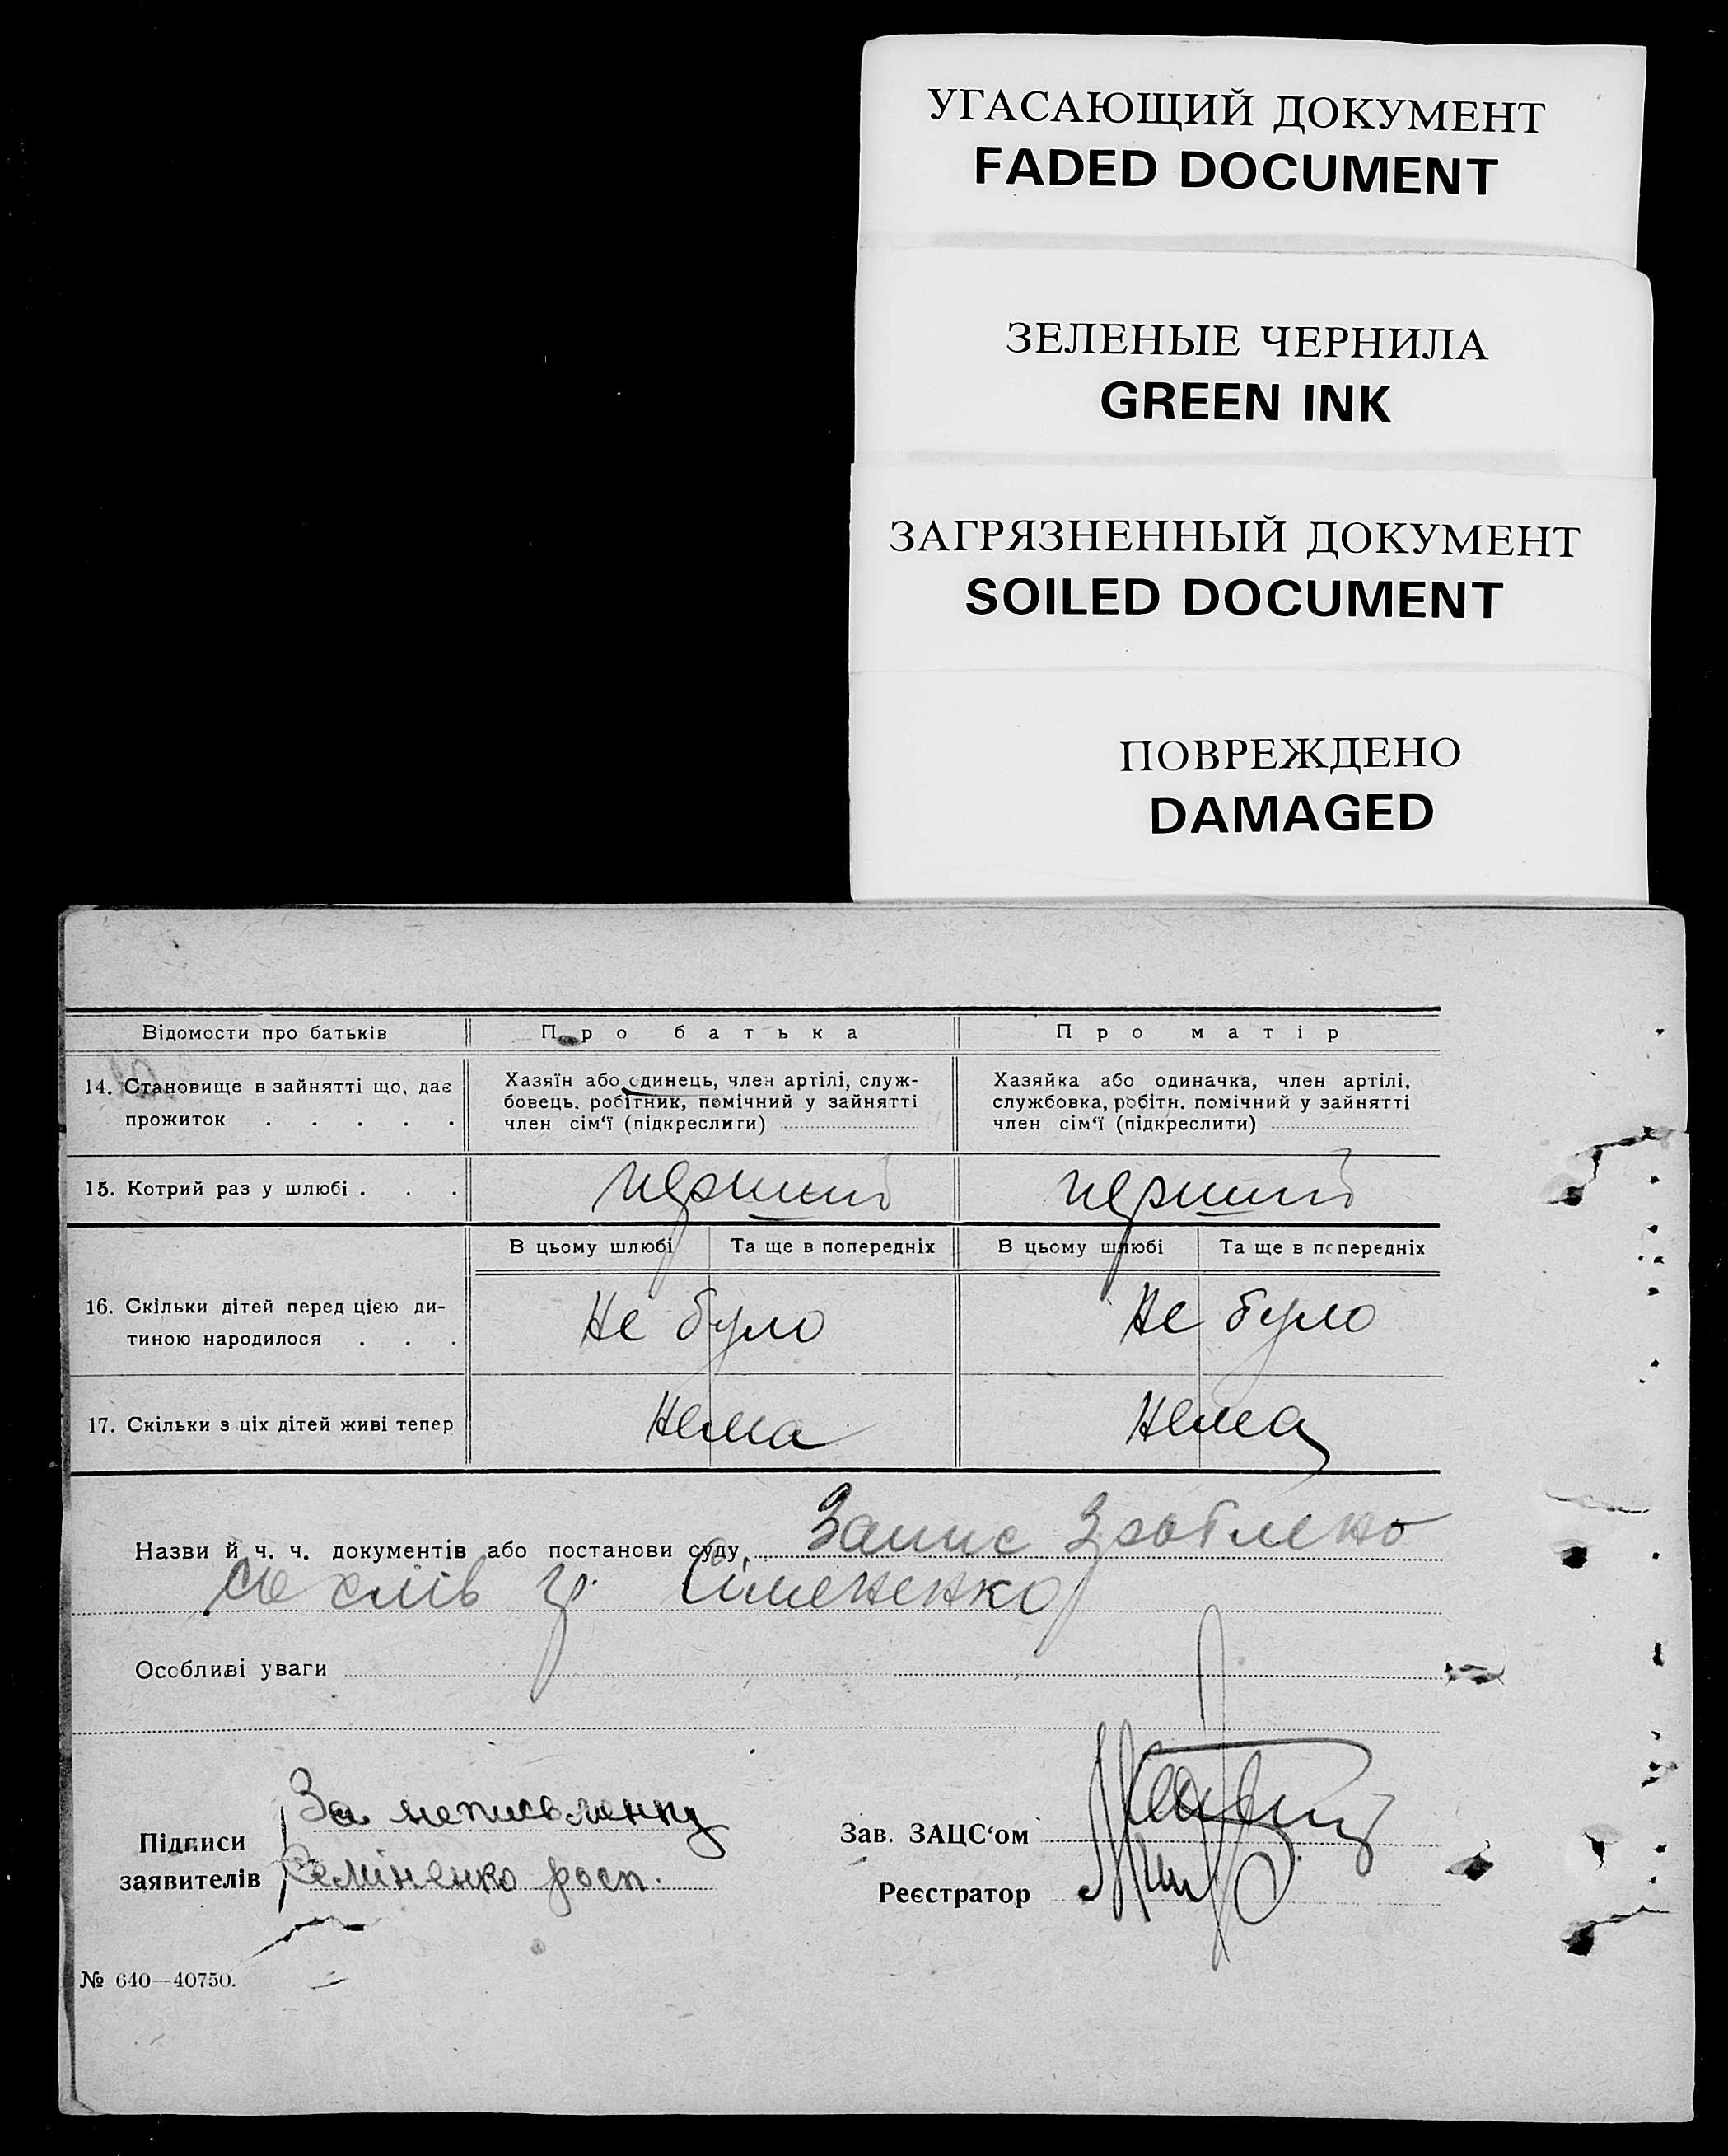 УГАСАЮЩИЙ ДОКУМЕНТ
FADED DOCUMENT
ЗЕЛЕНЫЕ ЧЕРНИЛА
GREEN INK
ЗАГРЯЗНЕННЫЙ ДОКУМЕНТ
SOILED DOCUMENT
ПОВРЕЖДЕНО
DAMAGED
Відомости про батьків
Про батька
Про матір
14. Становище в зайнятті що, дає
прожиток . . . . .
Хазяїн або одинець, член артілі, служ-
бовець. робітник, помічний у зайнятті
член сім'ї (підкреслити)
Хазяйка або одиначка, член артілі,
службовка, робітн. помічний у зайнятті
член сім'ї (підкреслити)
15. Котрий раз у шлюбі . . .
перший
перший
В цьому шлюбі
Та ще в попередніх
В цьому шлюбі
Та ще в попередніх
16. Скільки дітей перед цією ди-
тиною народилося . . .
Не було
Не було
17. Скільки з ціх дітей живі тепер
Нема
Нема
Назви й ч. ч. документів або постанови суду. Запис зроблено
со слів гр. Сімененко
Особливі уваги
Підписи
заявителів
За неписьменну
Семіненко росп.
Зав. ЗАЦС'ом
Реєстратор
№ 640—40750.